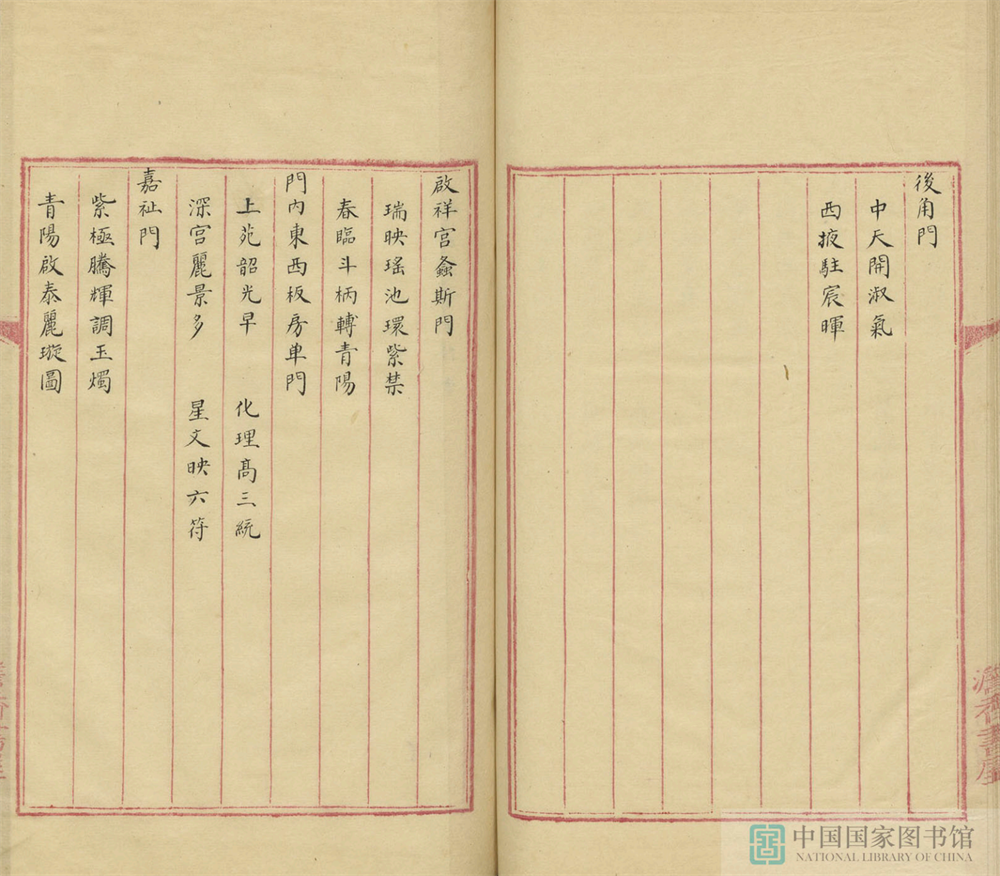 後角門
中天開淑氣
西掖駐宸暉
啟祥宮螽斯門
瑞映瑤池環紫禁
春臨斗柄轉青陽
門內東西板房車門
上苑韶光早　化理高三統
深宮麗景多　星文映六符
嘉祉門
紫極騰輝調玉燭
青陽啟泰麗璇圖
中国国家图书馆
NATIONAL LIBRARY OF CHINA